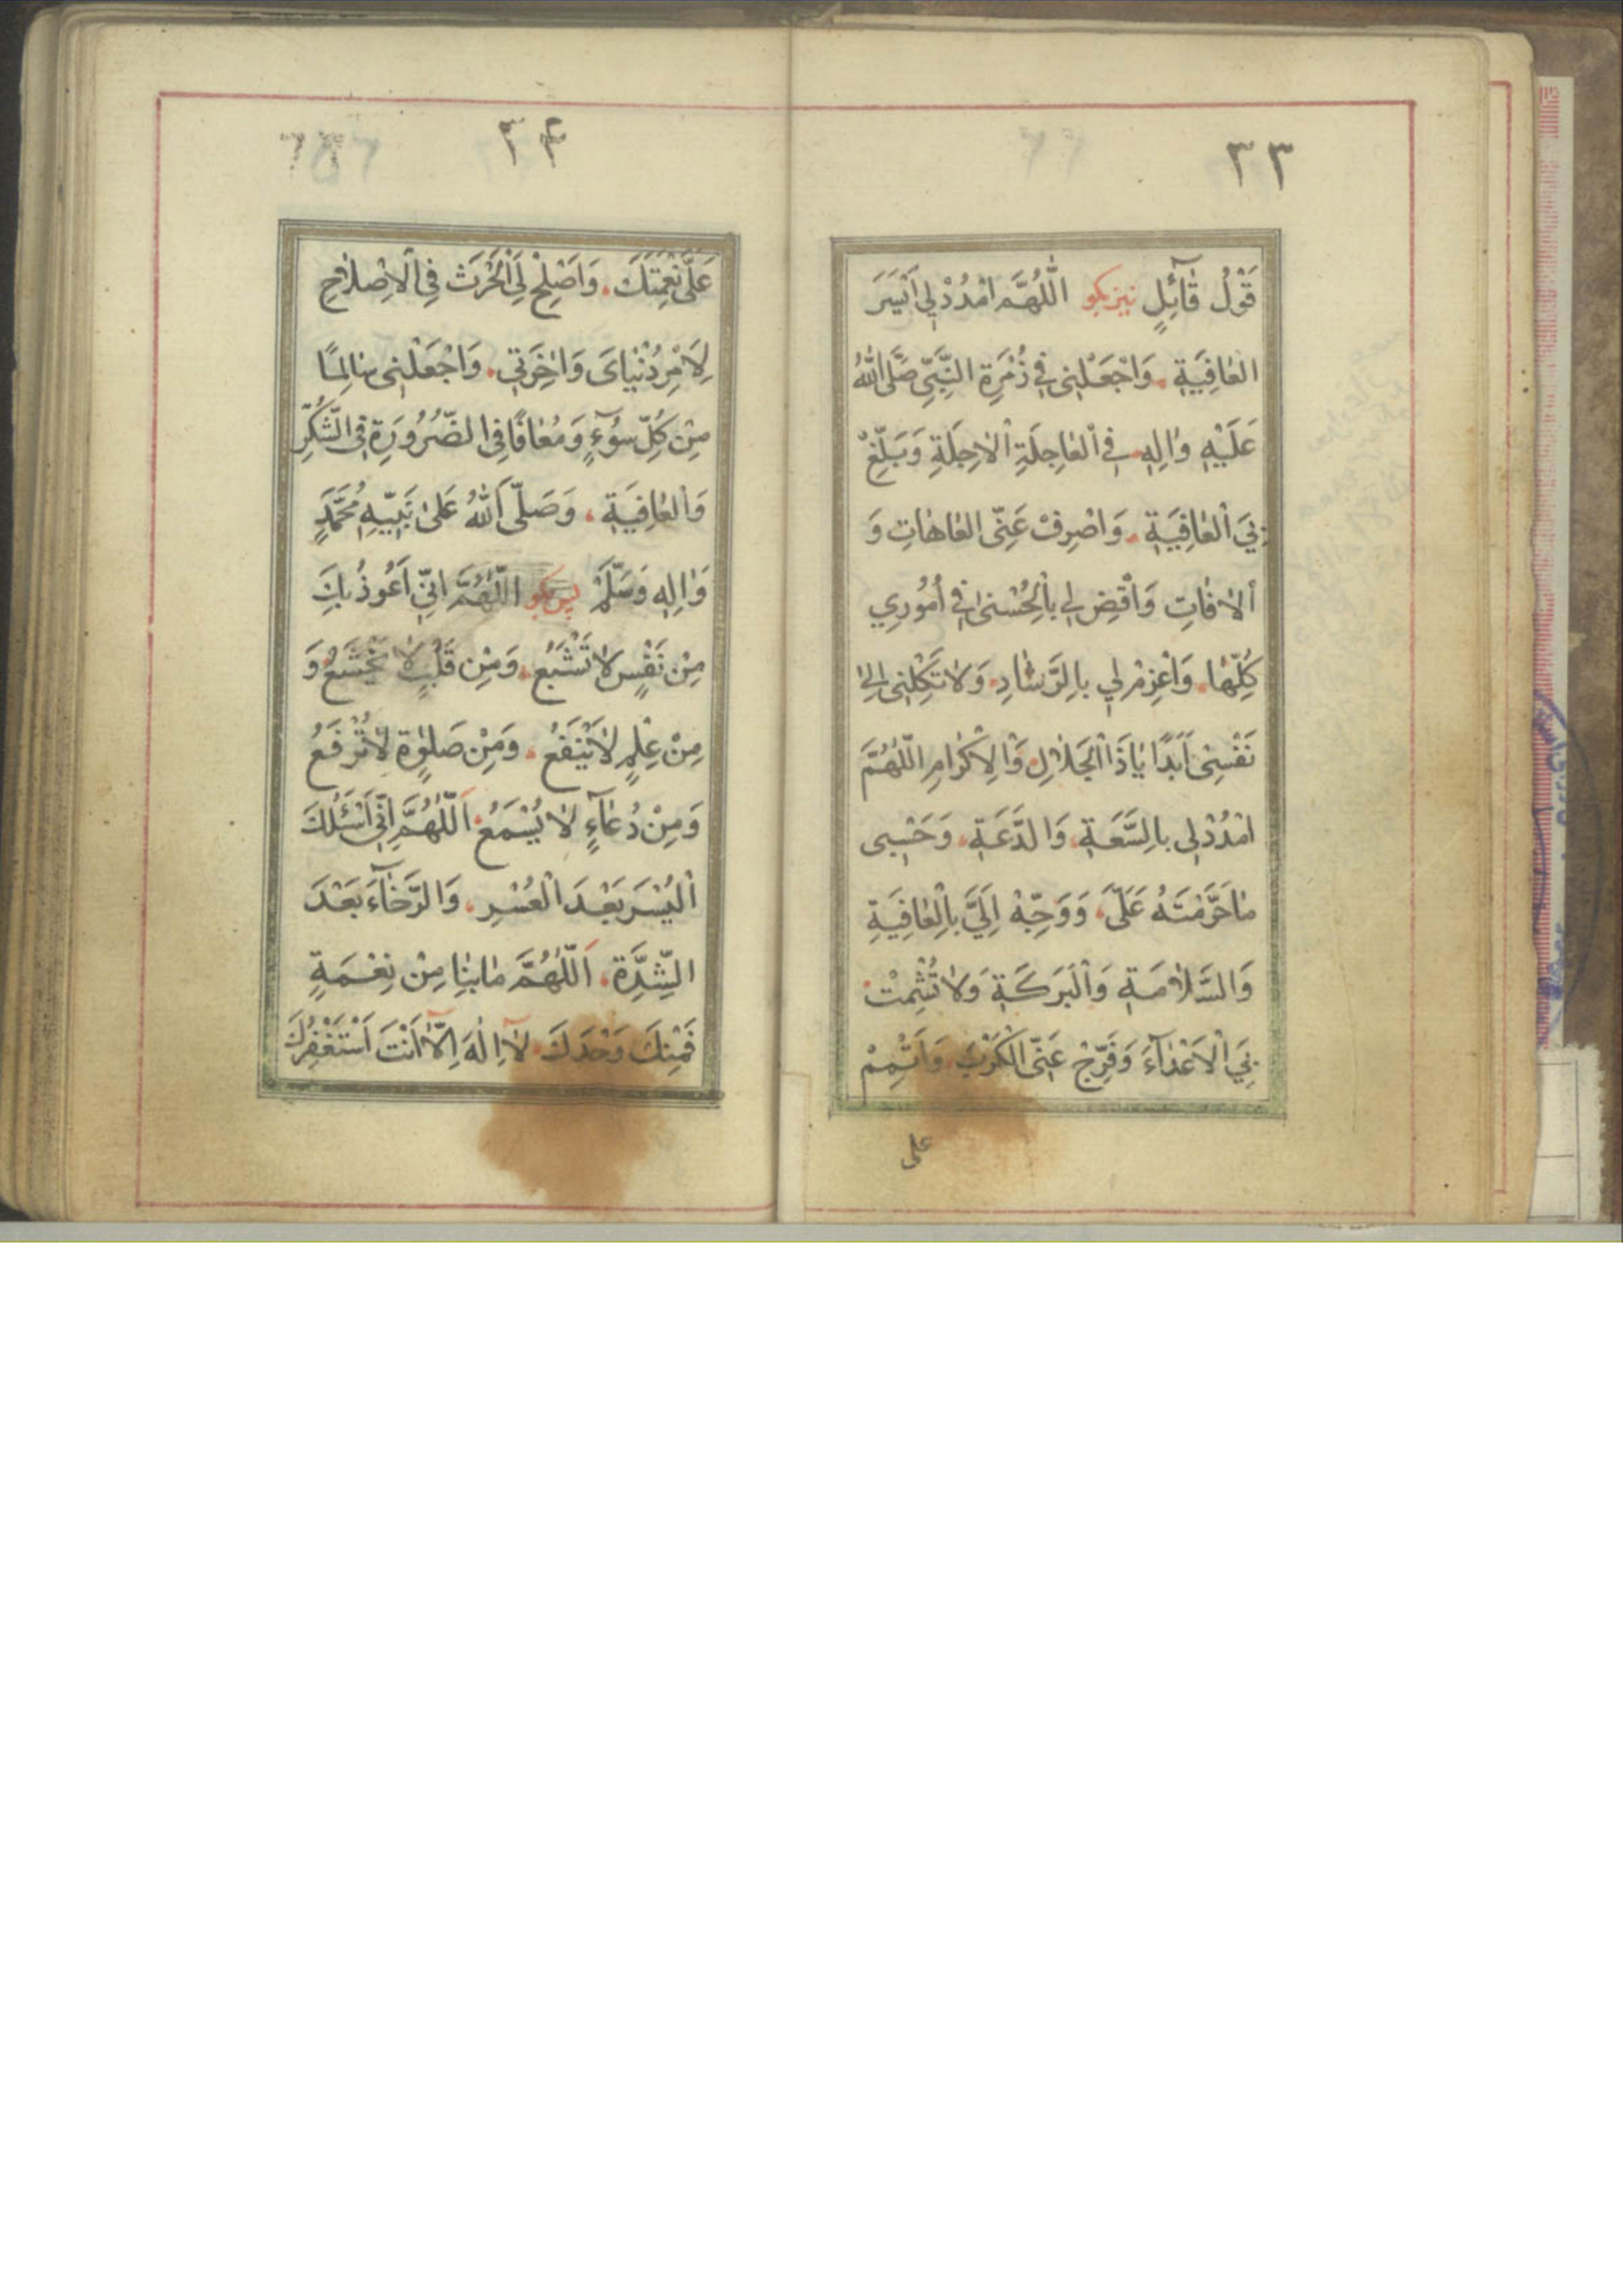 ٣٣
قَوْلُ قٰآئِلٍ نیز بکو اللّٰهُمَّ امْدُدْ لِي اَيْسَرَ
العٰافِيَةِ . وَاجْعَلْنِى فِي زُمْرَةِ النَّبِىِّ صَلَّى اللّٰهُ
عَلَيْهِ وَاٰلِهِ . فِي الْعٰاجِلَةِ الْاٰجِلَةِ وَبَلِّغْ
بِيَ الْعٰافِيَةِ . وَاصْرِفْ عَنِّى العٰاهٰاتِ وَ
الاٰفٰاتِ وَاقْضِ لِي بِالْحُسْنىٰ فِي اُمُورِي
كُلِّهٰا . وَاَعْزِمْ لِي بِالرَّشٰادِ . وَلاٰ تَكِلْنِى اِلىٰ
نَفْسِى اَبَدًا يٰا ذَا الْجَلاٰلِ . وَالْاِكْرٰامِ اللّٰهُمَّ
امْدُدْ لِى بِالسَّعَةِ . وَالدَّعَةِ . وَجَنِّبْنِى
مٰا حَرَّمْتَهُ عَلَىَّ . وَوَجِّهْ اِلَيَّ بِالْعٰافِيَةِ
وَالسَّلاٰمَةِ وَالْبَرَكَةِ وَلاٰ تُشْمِتْ
بِيَ الْاَعْدٰآءَ وَفَرِّجْ عَنِّى الْكَرْبَ وَاَتْمِمْ
على
٣۴
عَلَىَّ نِعْمَتَكَ . وَاَصْلِحْ لِيَ الْحَرْثَ فِي الْاِصْلاٰحِ
لِاَمْرِ دُنْيٰاىَ وَاٰخِرَتِي . وَاجْعَلْنِى سٰالِمًا
مِنْ كُلِّ سُوٓءٍ وَمُعٰافًا فِي الضَّرُورَةِ فِي الشُّكْرِ
وَالْعٰافِيَةِ . وَصَلَّى اللّٰهُ عَلىٰ نَبِيِّهِ مُحَمَّدٍ
وَاٰلِهِ وَسَلَّمَ پس بکو اللّٰهُمَّ اِنِّى اَعُوذُ بِكَ
مِنْ نَفْسٍ لاٰ تَشْبَعُ . وَمِنْ قَلْبٍ لاٰ يَخْشَعُ وَ
مِنْ عِلْمٍ لاٰ يَنْفَعُ . وَمِنْ صَلوٰةٍ لاٰ تُرْفَعُ
وَمِنْ دُعٰآءٍ لاٰ يُسْمَعُ . اَللّٰهُمَّ اِنِّى اَسْئَلُكَ
الْيُسْرَ بَعْدَ الْعُسْرِ . وَالرَّخٰآءَ بَعْدَ
الشِّدَّةِ . اَللّٰهُمَّ مٰا بِنٰا مِنْ نِعْمَةٍ
فَمِنْكَ وَحْدَكَ . لاٰ اِلٰهَ اِلّاٰ اَنْتَ اَسْتَغْفِرُكَ